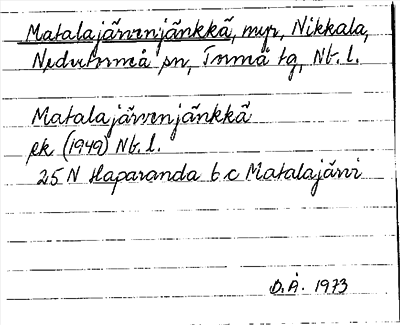 Matalajärvenjänkkä, myr, Nikkala,
Nedertorneå sn, Torneå tg, Nb. l.
Matalajärvenjänkkä
ek (1949) Nb. l.
25 N Haparanda 6 c Matalajärvi
B.Å. 1973